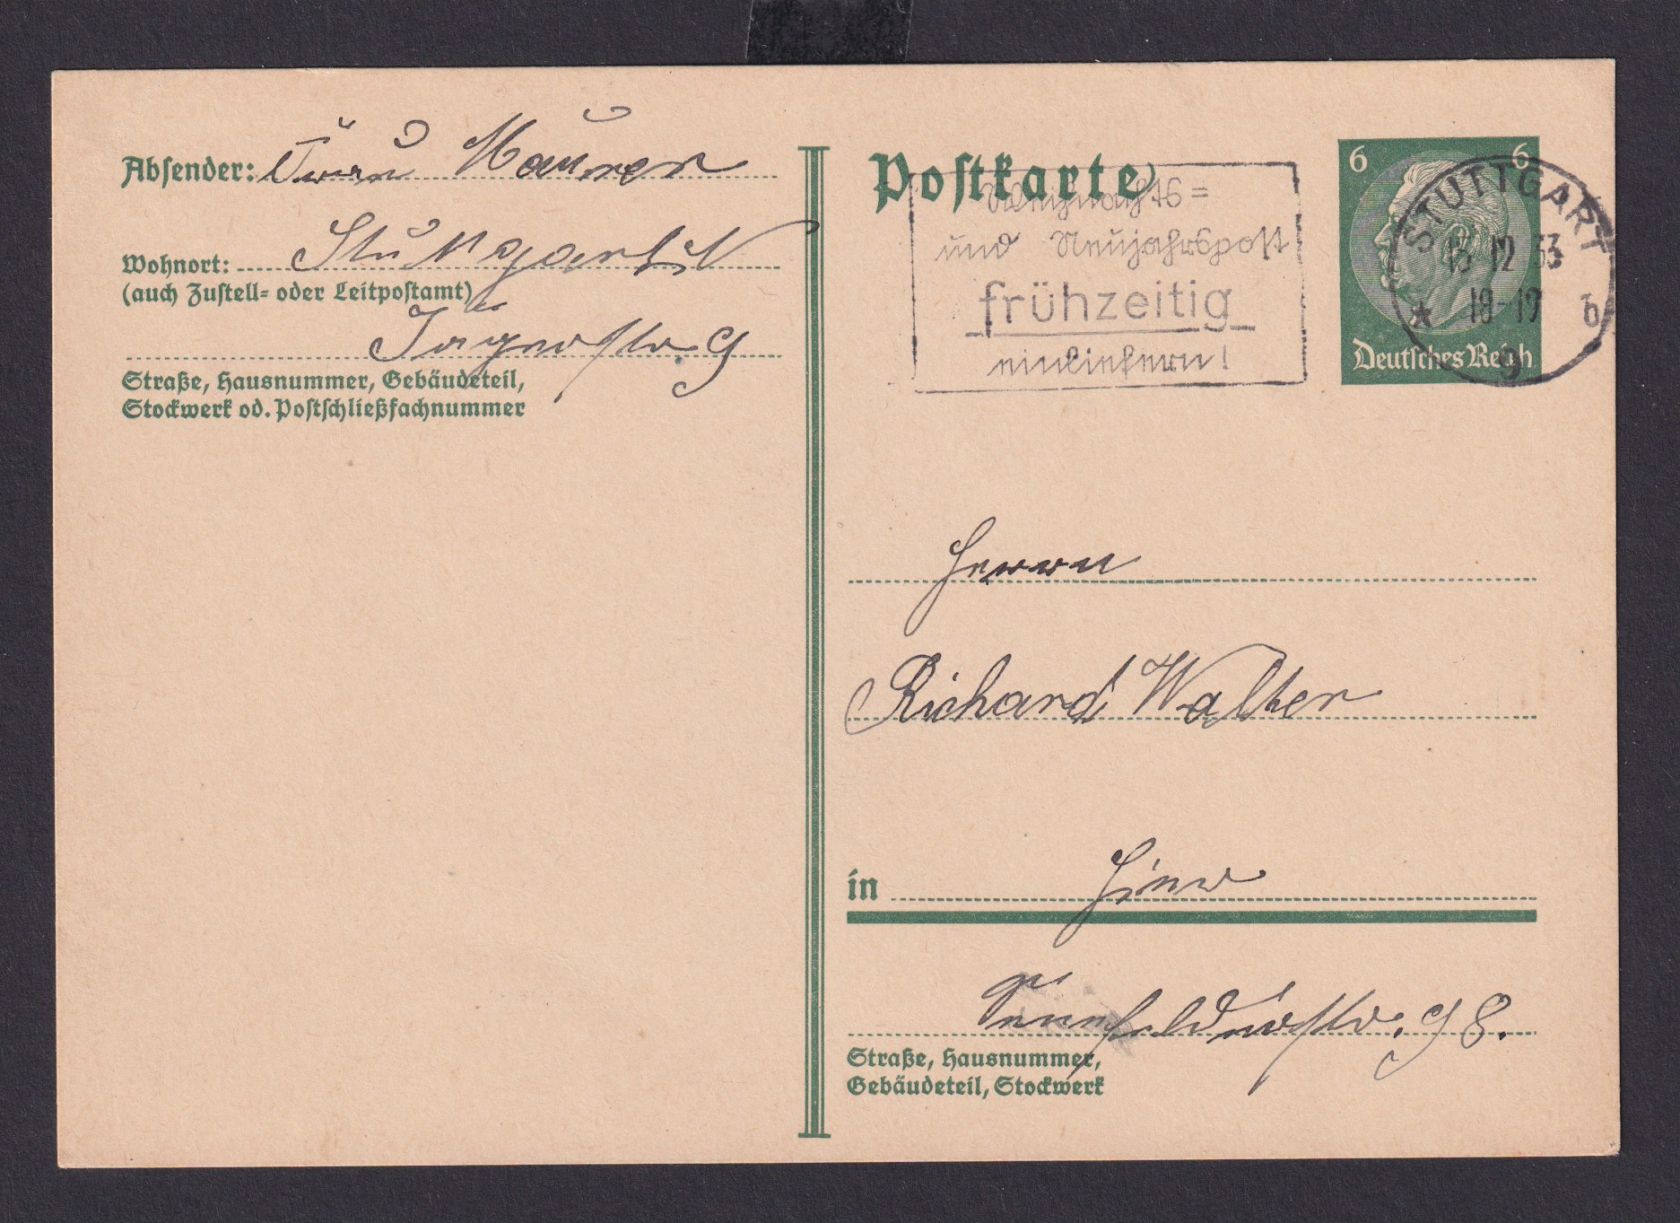 Absender: Frau Maurer
Wohnort: Stuttgart
(auch Zustell= oder Leitpostamt)
Jägerstr. 9
Straße, Hausnummer, Gebäudeteil,
Stockwerk od. Postschließfachnummer
Postkarte
Weihnachts=
und Neujahrspost
frühzeitig
einliefern!
6 6
Deutsches Reich
STUTTGART
12 33
18-19
b
9
Herrn
Richard Walter
in Hier
98.
Straße, Hausnummer,
Gebäudeteil, Stockwerk